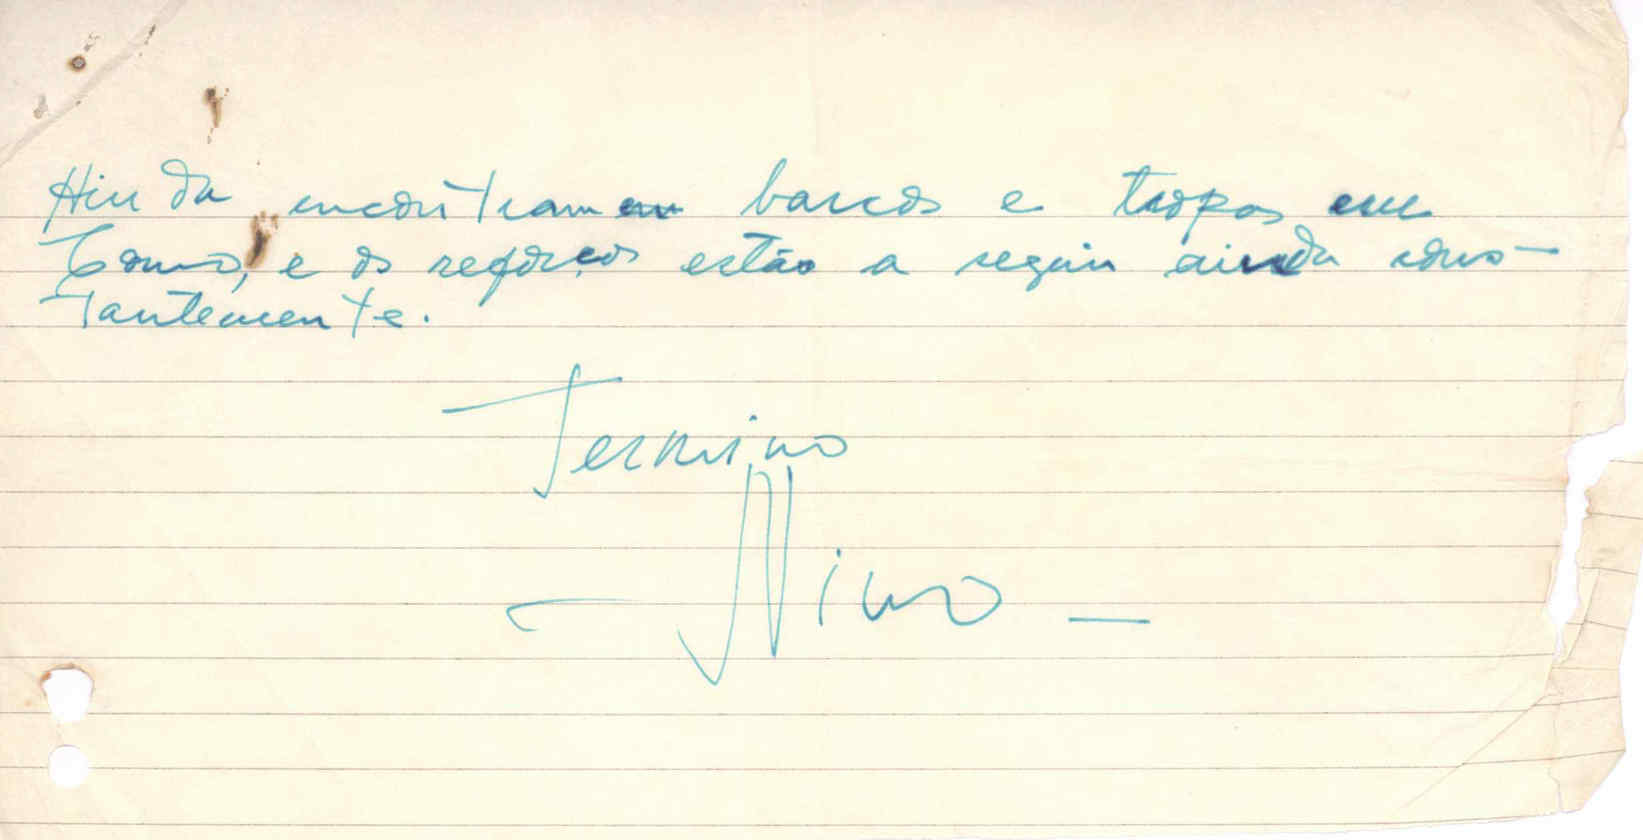 Ainda encontram em barcos e tropas em
Como, e os reforços estão a seguir ainda cons-
tantemente.
Termino
Nino -